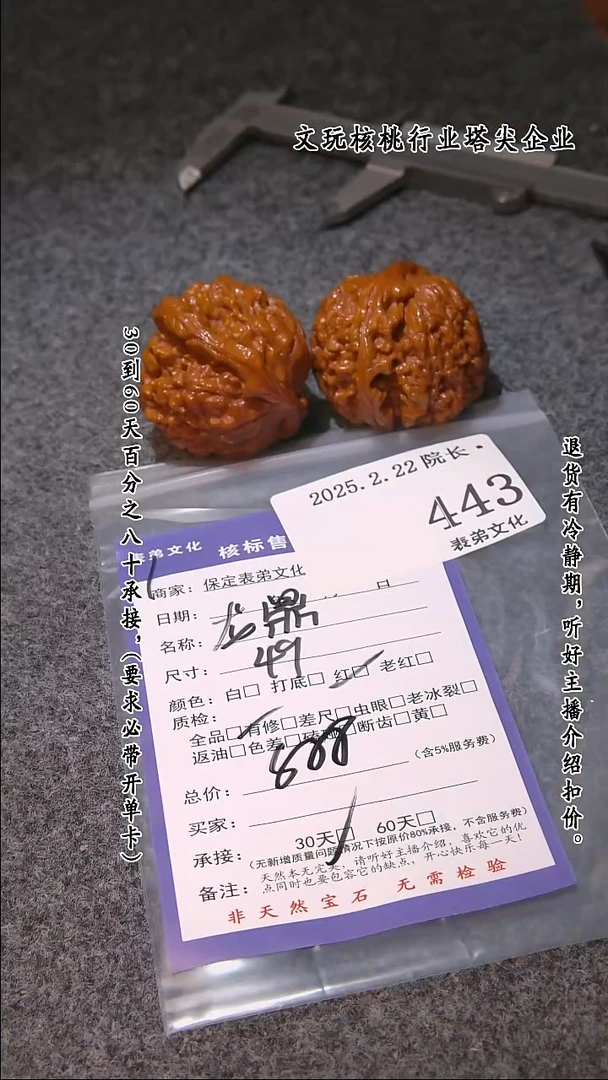 文玩核桃行业塔尖企业
30到60天百分之八十承接，(要求必带开单卡)
退货有冷静期，听好主播介绍扣价。
2025.2.22 院长·
443
表弟文化
表弟文化 核标售
商家：保定表弟文化
日期： 日
名称：龙鼎
尺寸：49
颜色：白□ 打底□ 红□ 老红□
质检：
全品□有修□差尺□虫眼□老冰裂□
返油□色差□磕□断齿□黄□
总价： (含5%服务费)
买家：
承接： 30天□ 60天□
(无新增质量问题情况下按原价80%承接，不含服务费)
备注： 天然本无完美，请听好主播介绍，喜欢它的优
点同时也要包容它的缺点，开心快乐每一天！
非天然宝石 无需检验